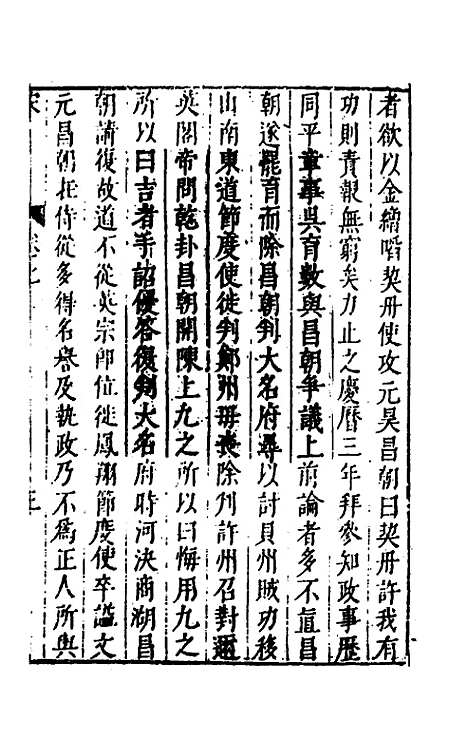 者欲以金繒啗契丹使攻元昊昌朝曰契丹許我有
功則責報無窮矣力止之慶曆三年拜參知政事歷
同平章事吳育數與昌朝爭議上前論者多不直昌
朝遂罷育而除昌朝判大名府尋以討貝州賊功移
山南東道節度使徙判鄭州母喪除判許州召對邇
英閣帝問乾卦昌朝開陳上九之所以曰悔用九之
所以曰吉者手詔優答復判大名府時河決商湖昌
朝請復故道不從英宗卽位徙鳳翔節度使卒謚文
元昌朝在侍從多得名譽及執政乃不爲正人所與